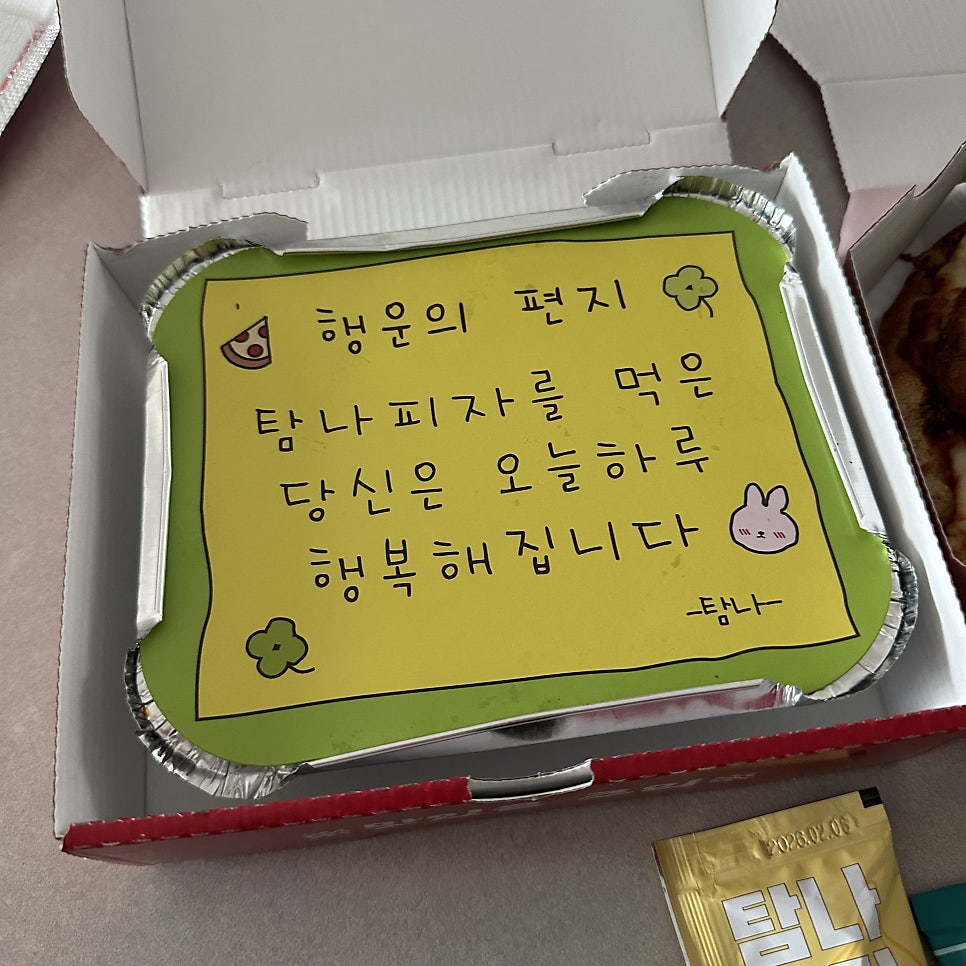 행운의 편지
탐나피자를 먹은
당신은 오늘하루
행복해집니다
-탐나-
2026.02.06
탐나